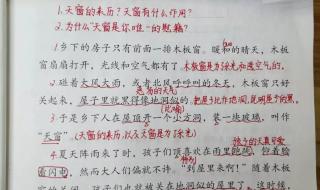 1.天窗的来历?天窗有什么作用?
2.为什么"天窗是你唯一的慰藉?
1.乡下的房子只有前面一排木板窗。暖和的晴天,木板
huo
窗扇扇打开,光线和空气都有了木板窗是为了采光和透空气的。
2.碰着大风大雨,或者北风呼呼叫的冬天,木板窗只好
恶劣的天气
关起来,屋子里就黑得像地洞似的
(比喻)
3.于是乡下人在屋顶开一个小方洞,装一块玻璃,叫作
"天窗"(天窗的来历,以及天窗是为了采光)
孩子的天真可爱
4.夏天阵雨来了时,孩子们顶喜欢在雨里跑跳,仰着脸
特别
看闪电,然而大人们偏就不许。"到屋里来啊!"随着木板
窗的关闭,孩子们也就被关在地洞似的屋里了。这时候,